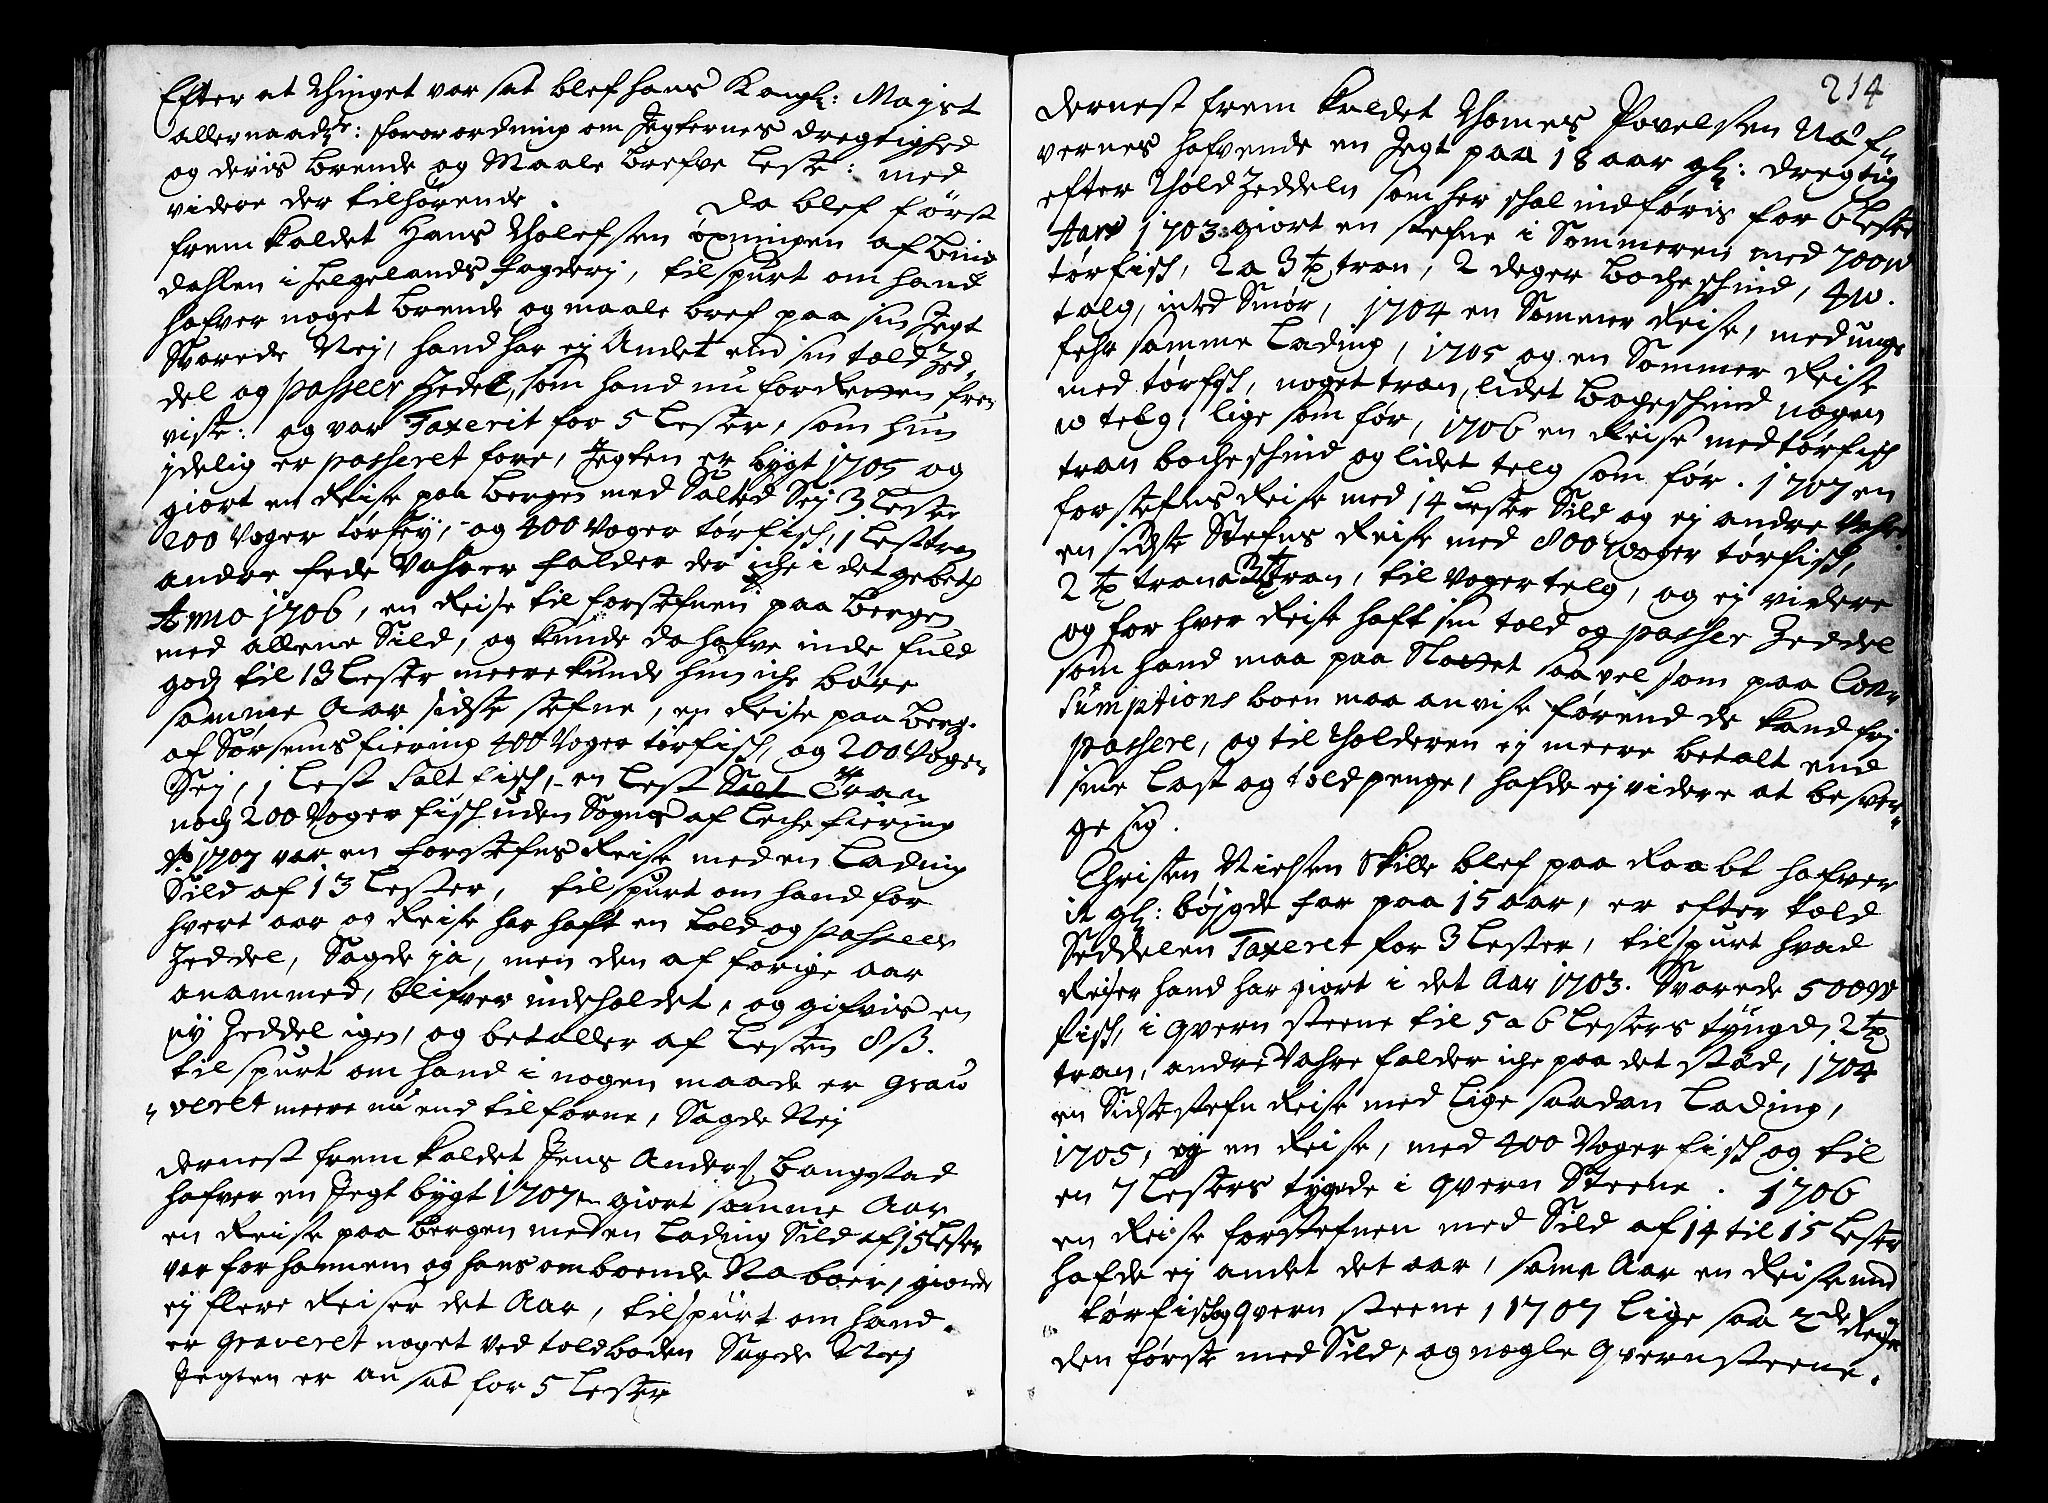 Efter at Thinget var sat blef hans Kongl: Mayst
allernaadgste: forordning om Jegternes dregtighed
og deris brende og Maale brefve leste: med
videre der tilhörende. Da blef först
frem kaldet Hans Tholefsen öxningen af bin
dahlen i helgelands fogderj, tilspurt om hand
hafver noget brende og maale bref paa sin Jegt
Svarede Nej, hand har ej Andet end sin told Zed
del og passeer Zedel, som hand nu for Retten frem
viste: og var Taxerit for 5 lester, som hun
jdelig er passeret fore, Jegten er bygt 1705 og
giort en Reise paa bergen med Salted Sej 3 lester
200 Voger törsey, og 400 Voger törfisch, 1 lest tran
andre fede Vahrer falder der iche i det gebeth
Anno 1706, en Reise til forstefnen paa bergen
med allene Sild, og kunde da hafve inde fuld
god til 13 lester meere kunde hun iche bære
samme Aar sidste stefne, en Reise paa berg.
af Sörsems fiering 400 Voger törfisch, og 200 Voger
Sej, 1 lest Salt fisch, en lest Salt Tran
noch 200 Voger fisch uden Sogns af leche fiering
Ao 1707 var en forstefns Reise med en Lading
Sild af 13 lester, tilspurt om hand for
hvert aar og Reise har haft en told og passeer
Zeddel, Sagde ja, men den af forige aar
anammed, blifver indeholdet, og gifvis en
ny Zeddel igen, og betaller af lesten 8 ß.
tilspurt om hand i nogen maade er grau
veret meere nu end tilforne, Sagde Nej
dernest fremkaldet Jens Anders: bangstad
hafver en Jegt bygt 1707 giort samme Aar
en Reise paa bergen med en Lading Sild af 15 lester
var for hannem og hans omboende Naboer, giorde
ej flere Reiser det Aar, tilspurt om hand
er graveret noget ved toldboden Sagde Nej
Jegten er ansat for 5 lester
214
dernest frem kaldet Thomes Povelsen
vernes hafvende en Jegt paa 18 aar gl: dregtig
efter Thold Zeddeln som her schal indföris for 6 lester
Aaro 1703 giort en stefne i Sommeren med 700 W
törfisch, 2 a 3 tr tran, 2 deger bocheschind, 4 W.
talg, inted Smör, 1704 en Sommer Reise, med unge
fehr samme Lading, 1705 og en Sommer Reise
med törfisch, noget tran, lidet bocheschind nogen
W telg, lige som för, 1706 en Reise med törfisch
tran bocheschind og lidet telg som för. 1707 en
forstefns Reise med 14 lester Sild og ej andre Vahre.
en sidste Stefns Reise med 800 Woger törfisch,
2 tr tran a 3 tr tran, til Voger telg, og ej videre
og for hver Reise haft sin told og passer Zeddel
som hand maa paa Slottet saavel som paa Con-
sumptions boen maa anvise förend de kand frj
passere, og til Tholderen ej meere betalt end
sine last og toldpenge, hafde ej videre at besver-
ge sig.
Christen Nielsen Skille blef paa Raabt hafver
it gl: böjgde far paa 15 aar, er efter told
Seddelen Taxeret for 3 lester, tilspurt hvad
Reiser hand har giort i det Aar 1703. Svarede 500 W
fisch, i qvern steene til 5 a 6 lesters tyngd, 2 tr
tran, andre Vahre falder iche paa det stöd, 1704
en Sidste stefn Reise med lige saadan Lading,
1705, og en Reise, med 400 Voger fisch og til
en 7 lesters tyngde i qvern Steene. 1706
en Reise forstefnen med Sild af 14 til 15 lester
hafde ej andet det aar, same Aar en Reise med
törfisch og qvern steene, 1707 lige saa 2de Reiser
den förste med Sild, og nogle qvernsteene.